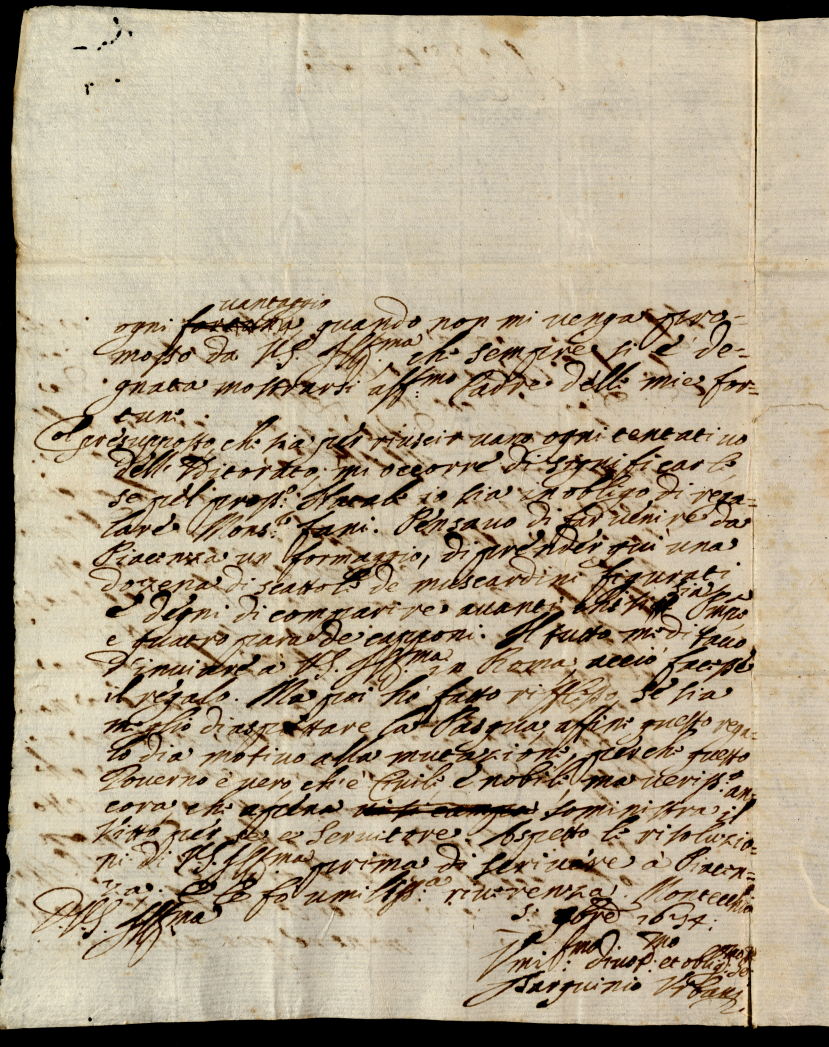 vantaggio
ogni fortuna, quando non mi venga pro-
mosso da VS. Illma che sempre si è de-
gnata mostrarsi affmo Padre delle mie for-
tune.
Col presupposto che sia per riuscir vano ogni tentativo
dell' mi occorre di significarle
se pel pross.o Natale io sia in obligo di rega-
lare Mons.r Fani. Pensavo di far venire da
Piacenza un formaggio, di prender qui una
dozena di scattole de muscardini figurati
e degni di comparire avanti
e quatro para de capponi. Il tutto
d'inviare a VS. Illma in Roma, acciò facesse
il regalo. Ma poi hò fatto riflesso, se sia
meglio di aspettare la Pasqua affine questo rega-
lo dia motivo alla mutazione, perche questo
Governo è vero che è Civile e nobile, ma veriss.o an-
cora che apena si campa somministra il
vitto per me e Servitore. Aspetto le risoluzio-
ni di VS. Illma prima di scrivere a Piacen-
za. E le fo umiliss.a riverenza. Montecchio
5 9bre 1694.
D VS. Illma
Umil.mo divot.mo et oblig.mo
Tarquinio Urbani